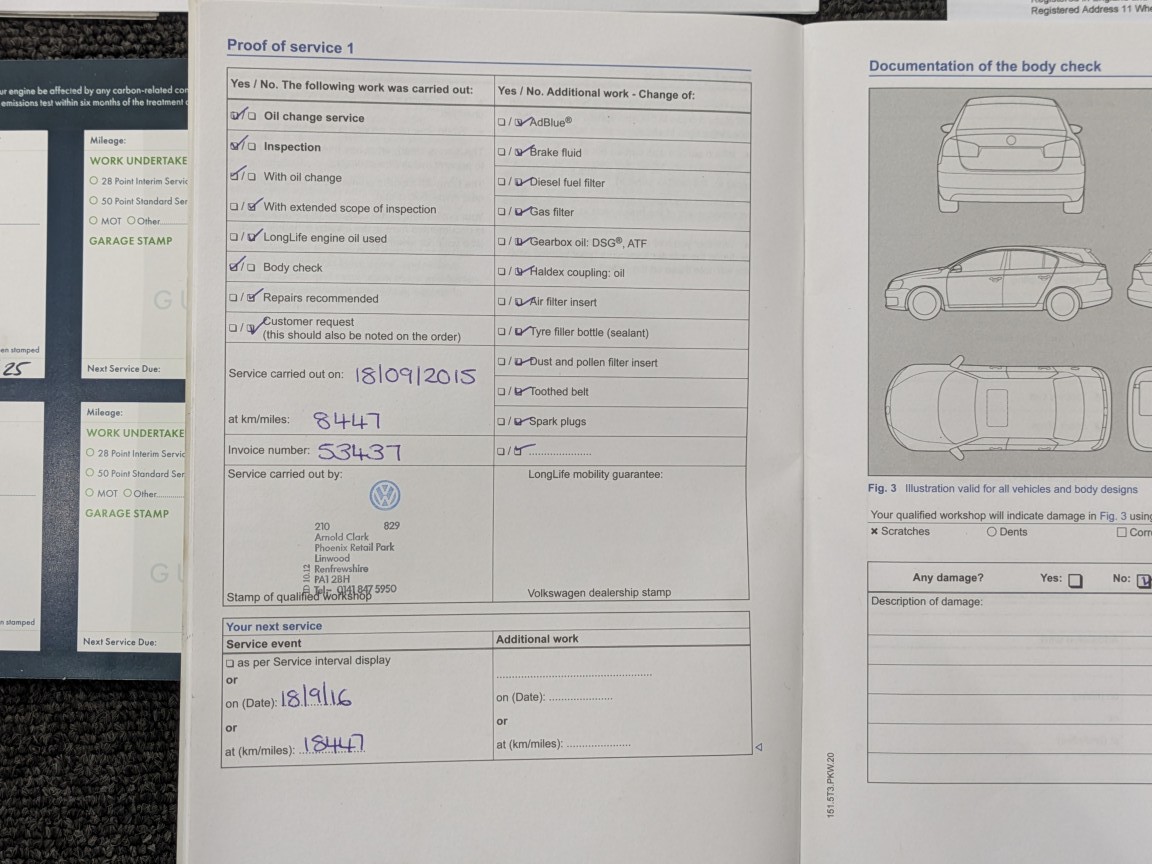 Registered Address 11
ur engine be affected by any carbon-related
emissions test within six months of the treatment
en stamped
25
n stamped
Mileage:
WORK UNDERTAKE
28 Point Interim Servic
50 Point Standard Ser
MOT Other
GARAGE STAMP
GU
Next Service Due:
Mileage:
WORK UNDERTAKE
28 Point Interim Servic
50 Point Standard Ser
MOT Other
GARAGE STAMP
GU
Next Service Due:
Proof of service 1
Yes / No. The following work was carried out:
Oil change service
Inspection
With oil change
With extended scope of inspection
LongLife engine oil used
Body check
Repairs recommended
Customer request
(this should also be noted on the order)
Service carried out on: 18/09/2015
at km/miles: 8447
Invoice number: 53437
Service carried out by:
210 829
Arnold Clark
Phoenix Retail Park
Linwood
Renfrewshire
PA1 2BH
Tel:- 0141 847 5950
Stamp of qualified workshop
Yes / No. Additional work - Change of:
AdBlue®
Brake fluid
Diesel fuel filter
Gas filter
Gearbox oil: DSG®, ATF
Haldex coupling: oil
Air filter insert
Tyre filler bottle (sealant)
Dust and pollen filter insert
Toothed belt
Spark plugs
LongLife mobility guarantee:
Volkswagen dealership stamp
Your next service
Service event
as per Service interval display
or
on (Date): 18/9/16
or
at (km/miles): 18447
Additional work
on (Date):
or
at (km/miles):
151.5T3.PKW.20
Documentation of the body check
Fig. 3 Illustration valid for all vehicles and body designs
Your qualified workshop will indicate damage in Fig. 3 using
Scratches Dents Corr
Any damage? Yes: No:
Description of damage: